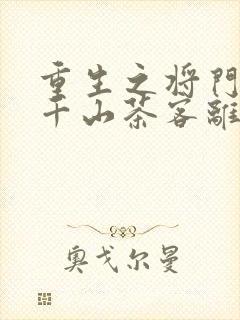 重生之将门
千山茶客离
奥戈尔曼